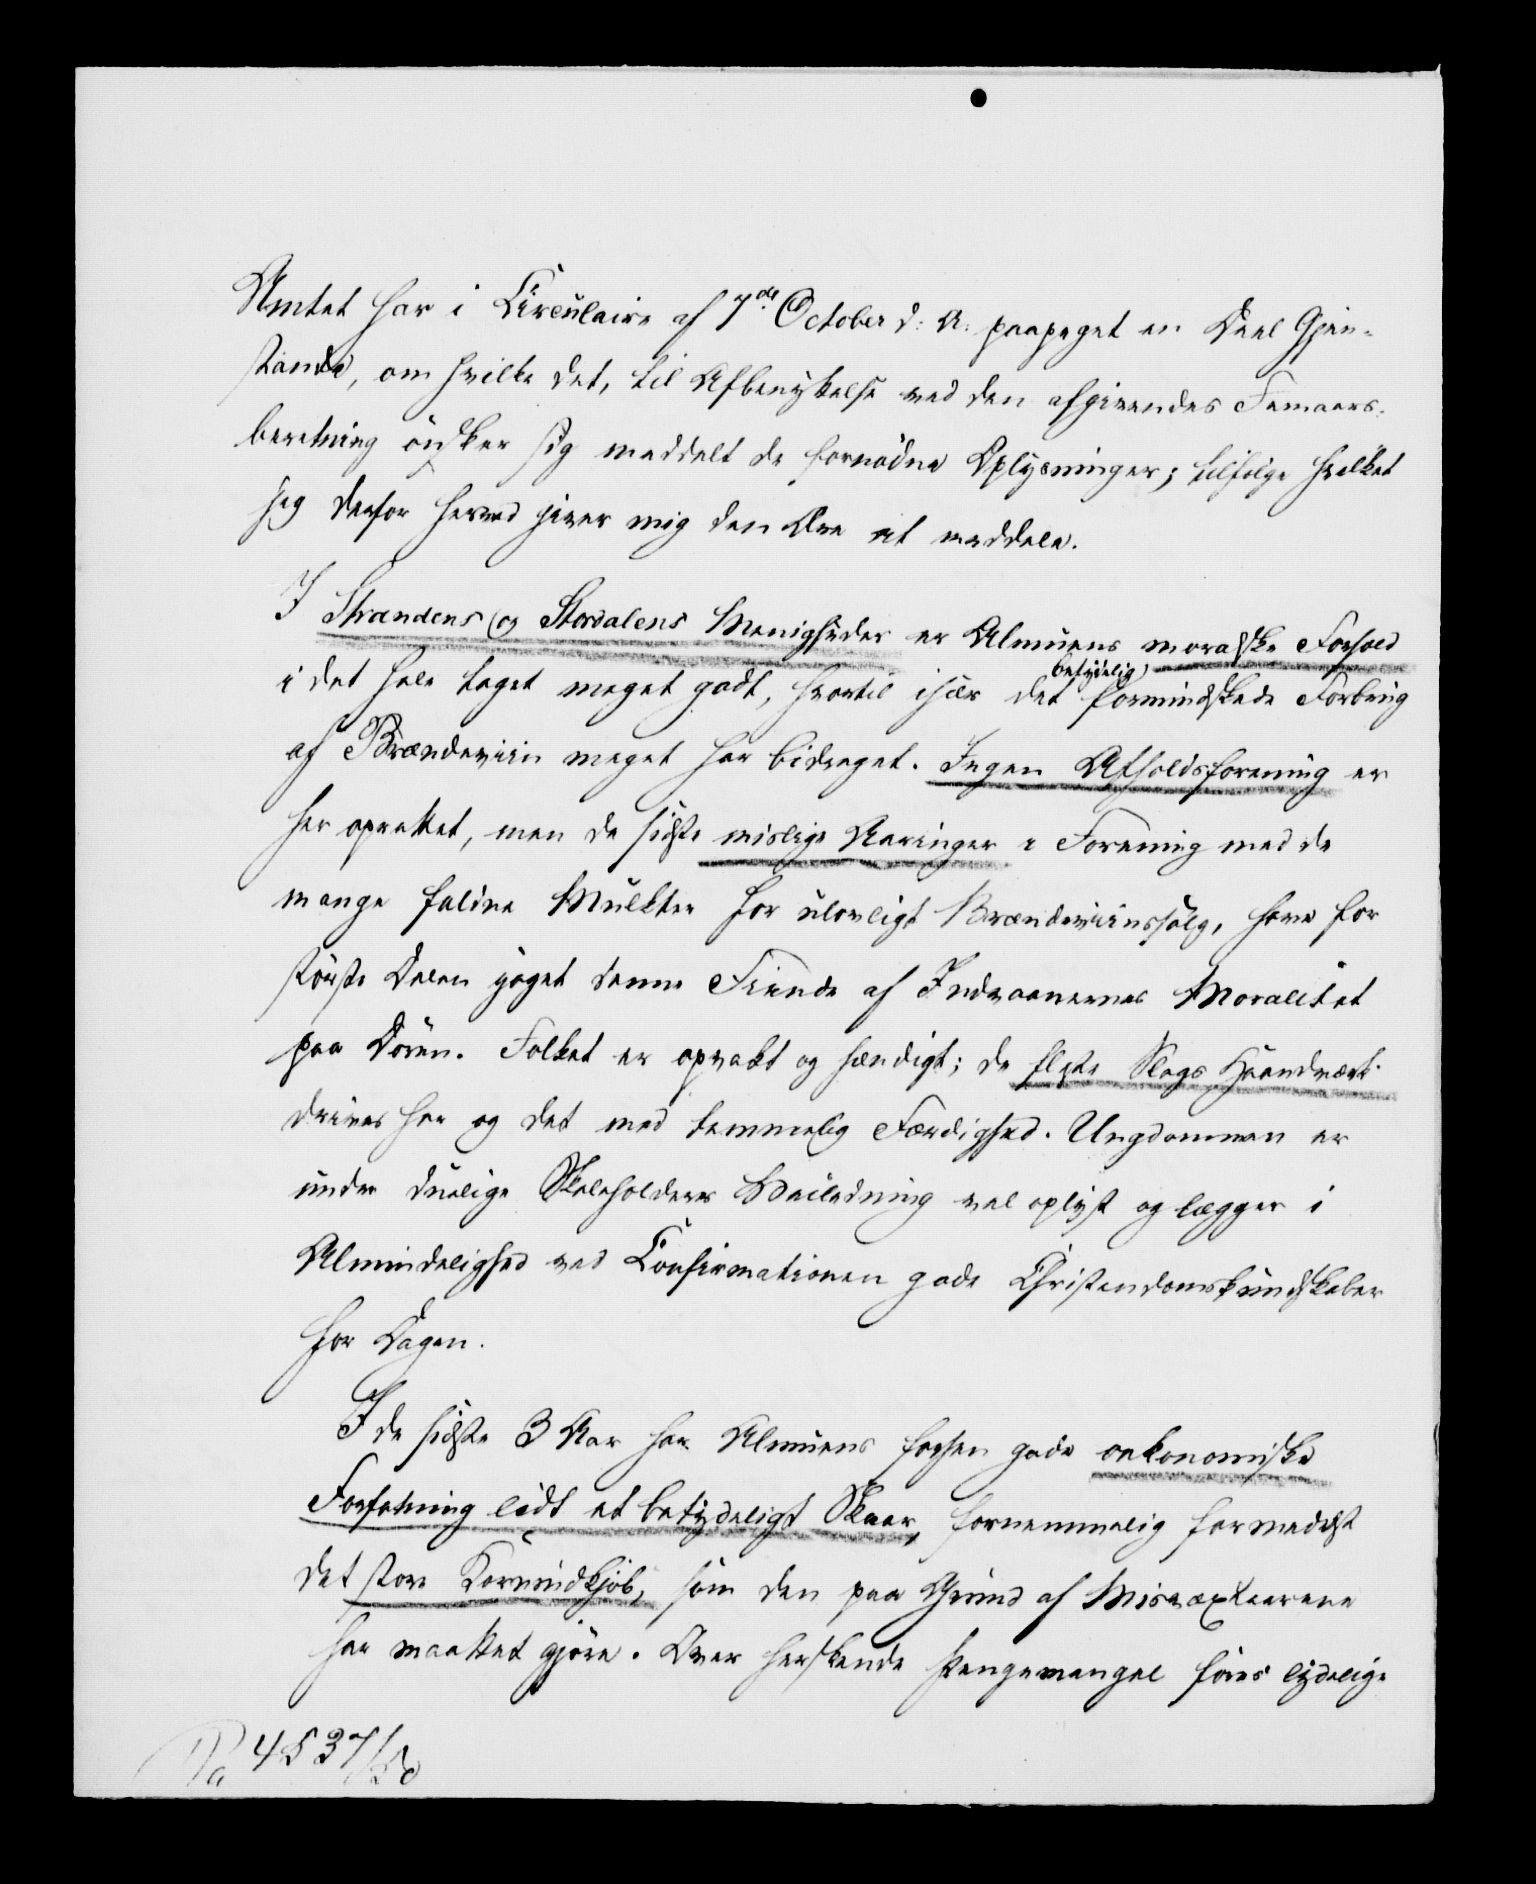 Amtet har i Circulaire af 7de October d: A: paapeget en Deel Gjen-
stande, om hvilke det, til Afbenyttelse ved den afgivendes Femaars-
beretning önsker sig meddelt de fornödne Oplysninger; tilfölge hvilket
jeg derfor herved giver mig den Ære at meddele.
I Strandens og Stordalens Menigheder er Almuens moralske Forhold
i det hele taget meget godt, hvortil især det betydelig formindskede Forbrug
af Brændeviin meget har bidraget. Ingen Afholdsforening er
her oprettet, men de sidste mislige Aaringer i Forening med de
mange faldne Mulkter for ulovligt Brændeviinssalg, have for
störste Delen jaget denne Fiende af Indvaanernes Moralitet
paa Dören. Folket er opvakt og hændigt; de fleste Slags Haandværk
drives her og det med temmelig Færdighed. Ungdommen er
under duelige Skoleholderes Veiledning vel oplyst og lægger i
Almindelighed ved Confirmationen gode Christendomskundskaber
for Dagen.
I de sidste 3 Aar har Almuens forhen gode oekonomiske
Forfatning lidt et betydeligt Skaar, fornemmelig formedelst
det store Kornindkjöb, som den paa Grund af Misvæxtaarene
har maattet gjöre. Over herskende Pengemangel föres lydelige
4537/